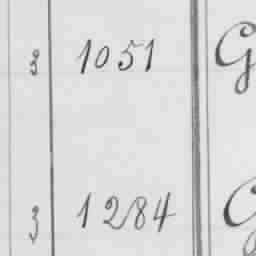 3 1051 G
3 1284